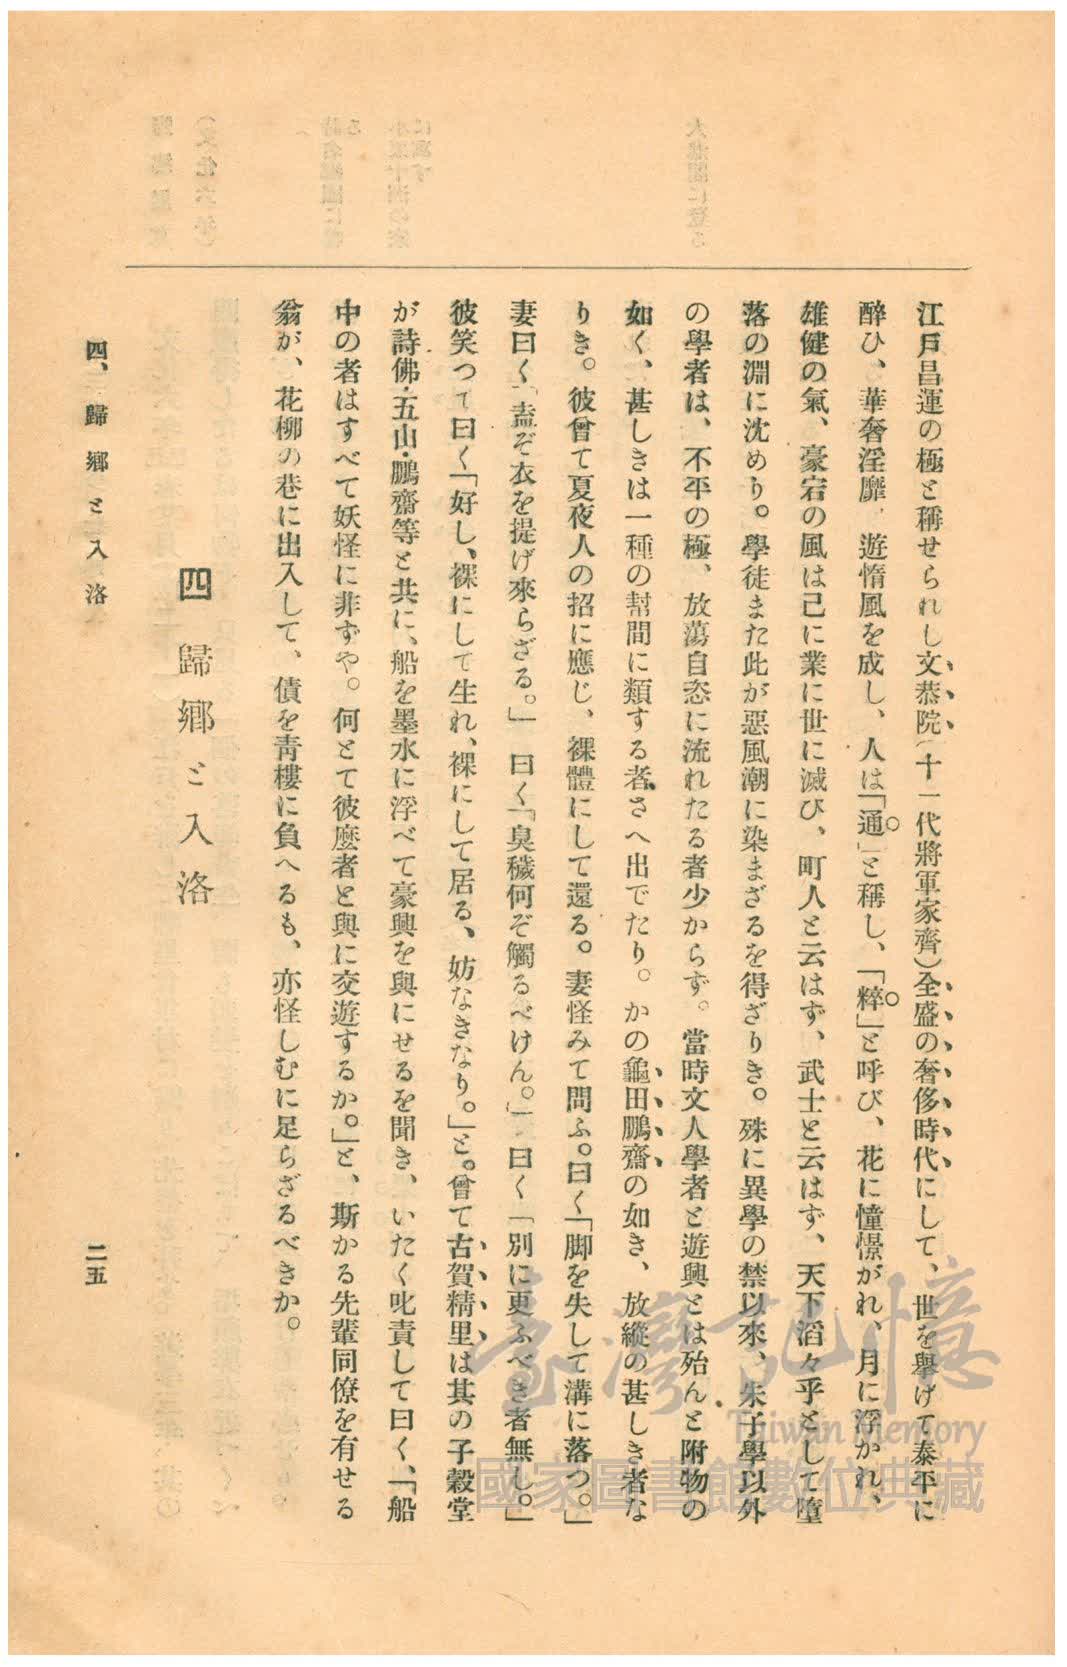 江戸昌運の極と稱せられし文恭院(十一代將軍家齊)全盛の奢侈時代にして、世を擧げて泰平に
醉ひ、華奢淫靡、遊惰風を成し、人は「通」と稱し、「粹」と呼び、花に憧憬がれ、月に浮かれ、
雄健の氣、豪宕の風は已に業に世に滅び、町人と云はず、武士と云はず、天下滔々乎として墮
落の淵に沈めり。學徒また此が惡風潮に染まざるを得ざりき。殊に異學の禁以來、朱子學以外
の學者は、不平の極、放蕩自恣に流れたる者少からず。當時文人學者と遊興とは殆んと附物の
如く、甚しきは一種の幇間に類する者さへ出でたり。かの龜田鵬齋の如き、放縱の甚しき者な
りき。彼曾て夏夜人の招に應じ、裸體にして還る。妻怪みて問ふ。曰く「脚を失して溝に落つ。」
妻曰く「盍ぞ衣を提げ來らざる。」曰く「臭穢何ぞ觸るべけん。」曰く「別に更ふべき者無し。」
彼笑つて曰く「好し、裸にして生れ、裸にして居る、妨なきなり。」と。曾て古賀精里は其の子穀堂
が詩佛・五山・鵬齋等と共に、船を墨水に浮べて豪興を與にせるを聞き、いたく叱責して曰く、「船
中の者はすべて妖怪に非ずや。何とて彼麼者と與に交遊するか。」と、斯かる先輩同僚を有せる
翁が、花柳の巷に出入して、債を靑樓に負へるも、亦怪しむに足らざるべきか。
四 歸鄕と入洛
四、歸鄕と入洛
二五
臺灣記憶
Taiwan Memory
國家圖書館數位典藏